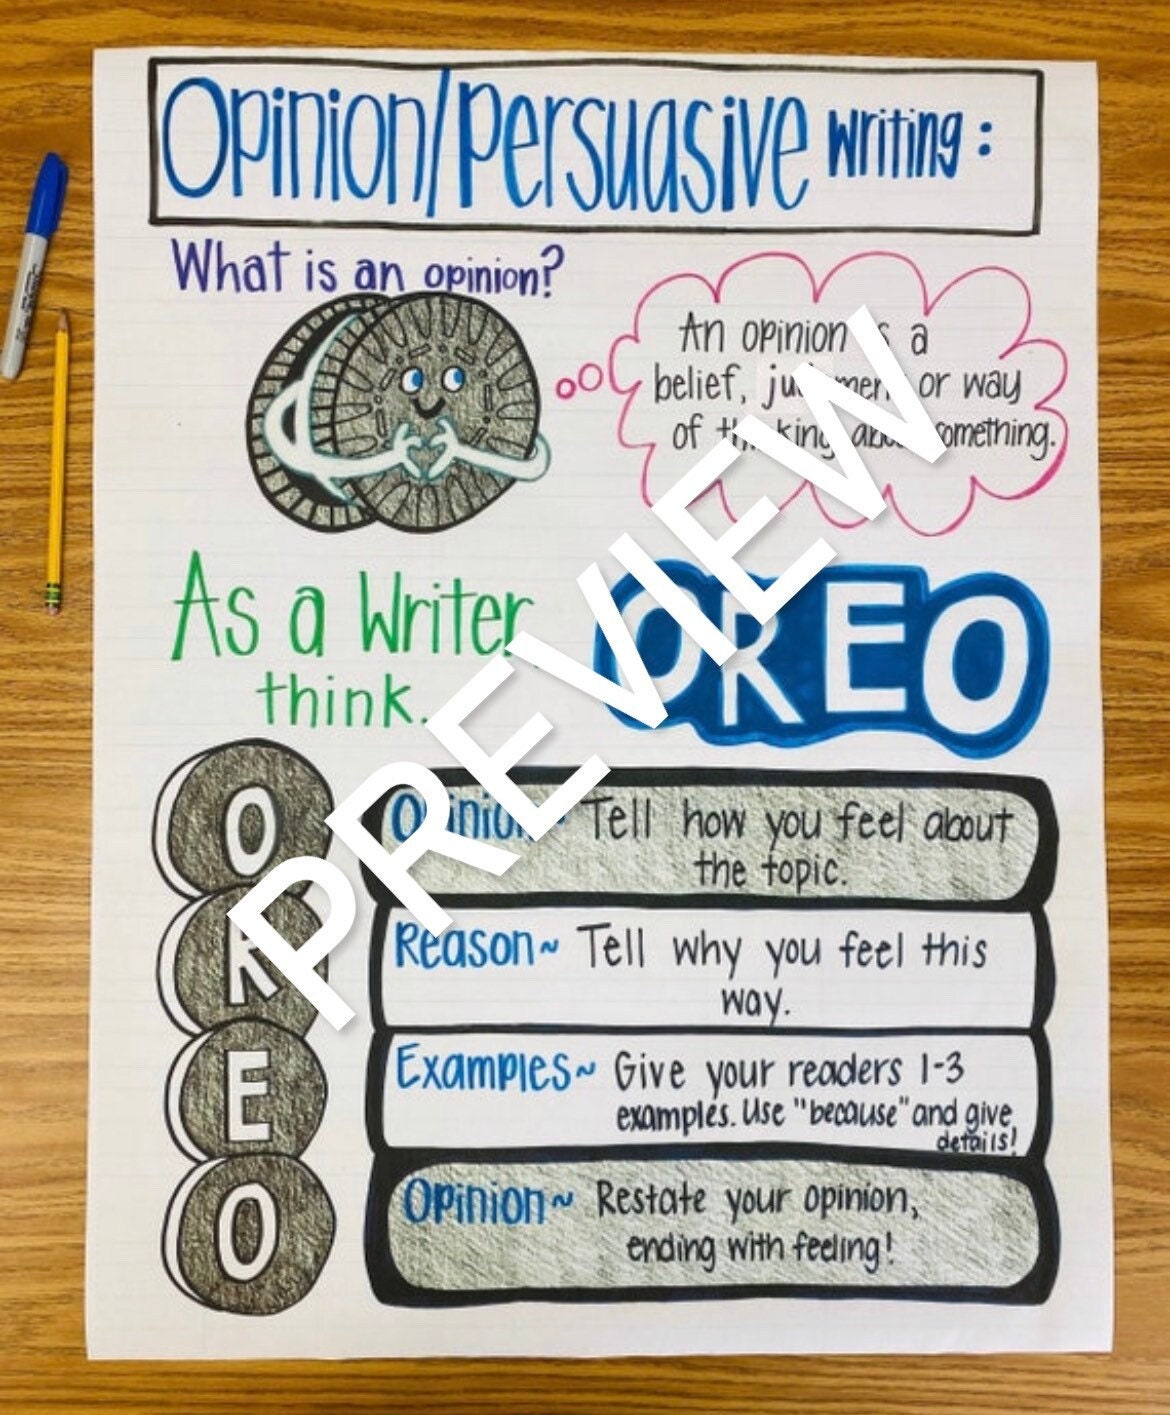 Opinion/Persuasive Writing:
What is an opinion?
An opinion is a
belief, judgment or way
of thinking about something.
As a Writer,
think.
OREO
PREVIEW
O
Opinion~ Tell how you feel about
the topic.
R
Reason~ Tell why you feel this
way.
E
Examples~ Give your readers 1-3
examples. Use "because" and give
details!
O
Opinion~ Restate your opinion,
ending with feeling!